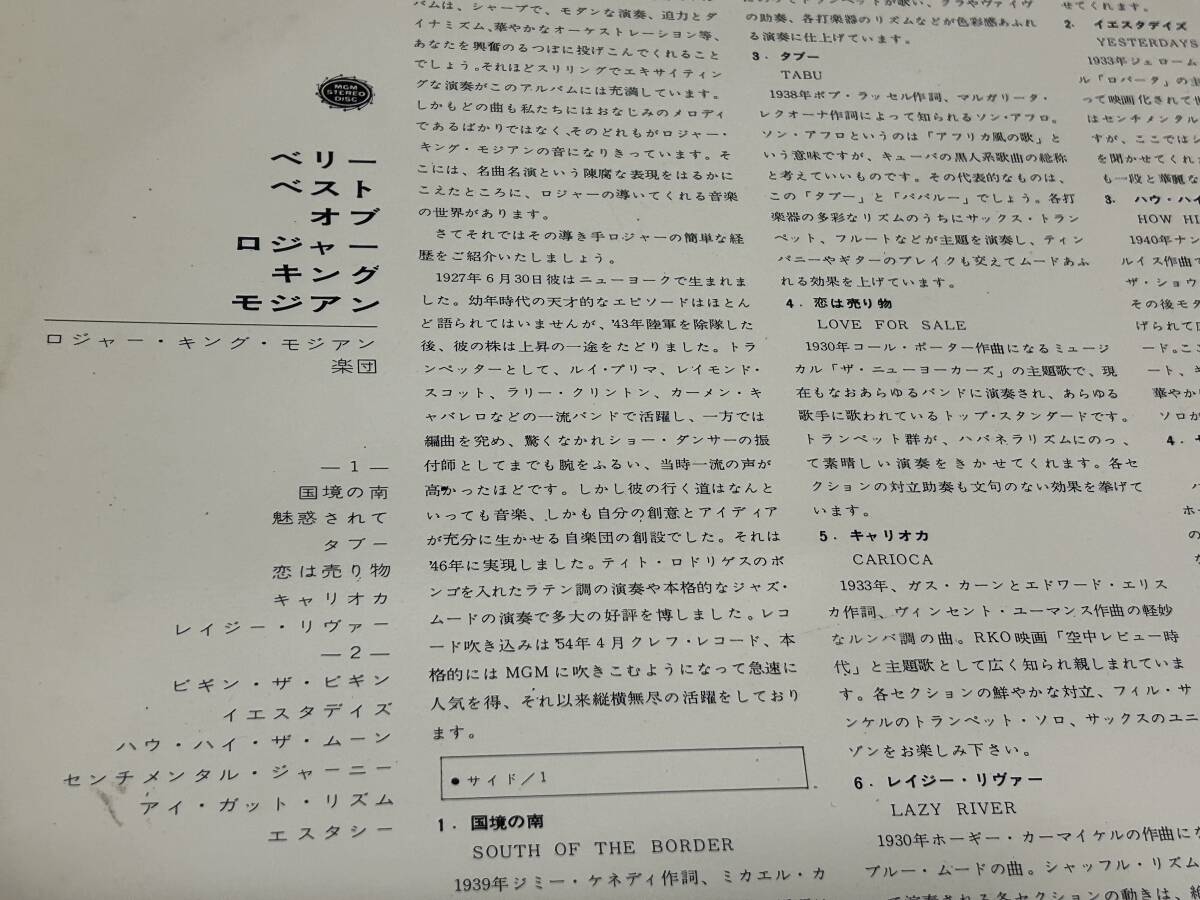 MGM
STEREO
DISC
ベリー
ベスト
オブ
ロジャー
キング
モジアン
ロジャー・キング・モジアン
楽団
— 1 —
国境の南
魅惑されて
タブー
恋は売り物
キャリオカ
レイジー・リヴァー
— 2 —
ビギン・ザ・ビギン
イエスタデイズ
ハウ・ハイ・ザ・ムーン
センチメンタル・ジャーニー
アイ・ガット・リズム
エスタシー
バムは、シャープで、モダンな演奏、迫力とダ
イナミズム、華やかなオーケストレーション等、
あなたを興奮のるつぼに投げこんでくれること
でしょう。それほどスリリングでエキサイティン
グな演奏がこのアルバムには充満しています。
しかもどの曲も私たちにはおなじみのメロディ
であるばかりではなく、そのどれもがロジャー・
キング・モジアンの音になりきっています。そ
こには、名曲名演という陳腐な表現をはるかに
こえたところに、ロジャーの導いてくれる音楽
の世界があります。
さてそれではその導き手ロジャーの簡単な経
歴をご紹介いたしましょう。
1927年6月30日彼はニューヨークで生まれま
した。幼年時代の天才的なエピソードはほとん
ど語られてはいませんが、'43年陸軍を除隊した
後、彼の株は上昇の一途をたどりました。トラ
ンペッターとして、ルイ・プリマ、レイモンド・
スコット、ラリー・クリントン、カーメン・キ
ャバレロなどの一流バンドで活躍し、一方では
編曲を究め、驚くなかれショー・ダンサーの振
付師としてまでも腕をふるい、当時一流の声が
高かったほどです。しかし彼の行く道はなんと
いっても音楽、しかも自分の創意とアイディア
が充分に生かせる自楽団の創設でした。それは
'46年に実現しました。ティト・ロドリゲスのボ
ンゴを入れたラテン調の演奏や本格的なジャズ・
ムードの演奏で多大の好評を博しました。レコ
ード吹き込みは'54年4月クレフ・レコード、本
格的にはMGMに吹きこむようになって急速に
人気を得、それ以来縦横無尽の活躍をしており
ます。
● サイド／1
1. 国境の南
SOUTH OF THE BORDER
1939年ジミー・ケネディ作詞、ミカエル・カ
の助奏、各打楽器のリズムなどが色彩感あふれ
る演奏に仕上げています。
3. タブー
TABU
1938年ボブ・ラッセル作詞、マルガリータ・
レクオーナ作詞によって知られるソン・アフロ。
ソン・アフロというのは「アフリカ風の歌」と
いう意味ですが、キューバの黒人系歌曲の総称
と考えていいものです。その代表的なものは、
この「タブー」と「ババルー」でしょう。各打
楽器の多彩なリズムのうちにサックス・トラン
ペット、フルートなどが主題を演奏し、ティン
パニーやギターのブレイクも交えてムードあふ
れる効果を上げています。
4. 恋は売り物
LOVE FOR SALE
1930年コール・ポーター作曲になるミュージ
カル「ザ・ニューヨーカーズ」の主題歌で、現
在もなおあらゆるバンドに演奏され、あらゆる
歌手に歌われているトップ・スタンダードです。
トランペット群が、ハバネラリズムにのっ、
て素晴しい演奏をきかせてくれます。各セ
クションの対立助奏も文句のない効果を挙げて
います。
5. キャリオカ
CARIOCA
1933年、ガス・カーンとエドワード・エリス
カ作詞、ヴィンセント・ユーマンス作曲の軽妙
なルンバ調の曲。RKO映画「空中レビュー時
代」と主題歌として広く知られ親しまれていま
す。各セクションの鮮やかな対立、フィル・サ
ンケルのトランペット・ソロ、サックスのユニ
ゾンをお楽しみ下さい。
6. レイジー・リヴァー
LAZY RIVER
1930年ホーギー・カーマイケルの作曲にな
ブルー・ムードの曲。シャッフル・リズム
て演奏される各セクションの動きは、絶
せてくれます。
2. イエスタデイズ
YESTERDAYS
1933年ジェローム・
ル「ロバータ」の主
って映画化されて
はセンチメンタル
すが、ここではシ
を聞かせてくれ
も一段と華麗な
3. ハウ・ハイ
HOW HI
1940年ナン
ルイス作曲で
ザ・ショウ
その後モダ
げられて
ード。ここ
ート、キ
華やか
ソロが
4.